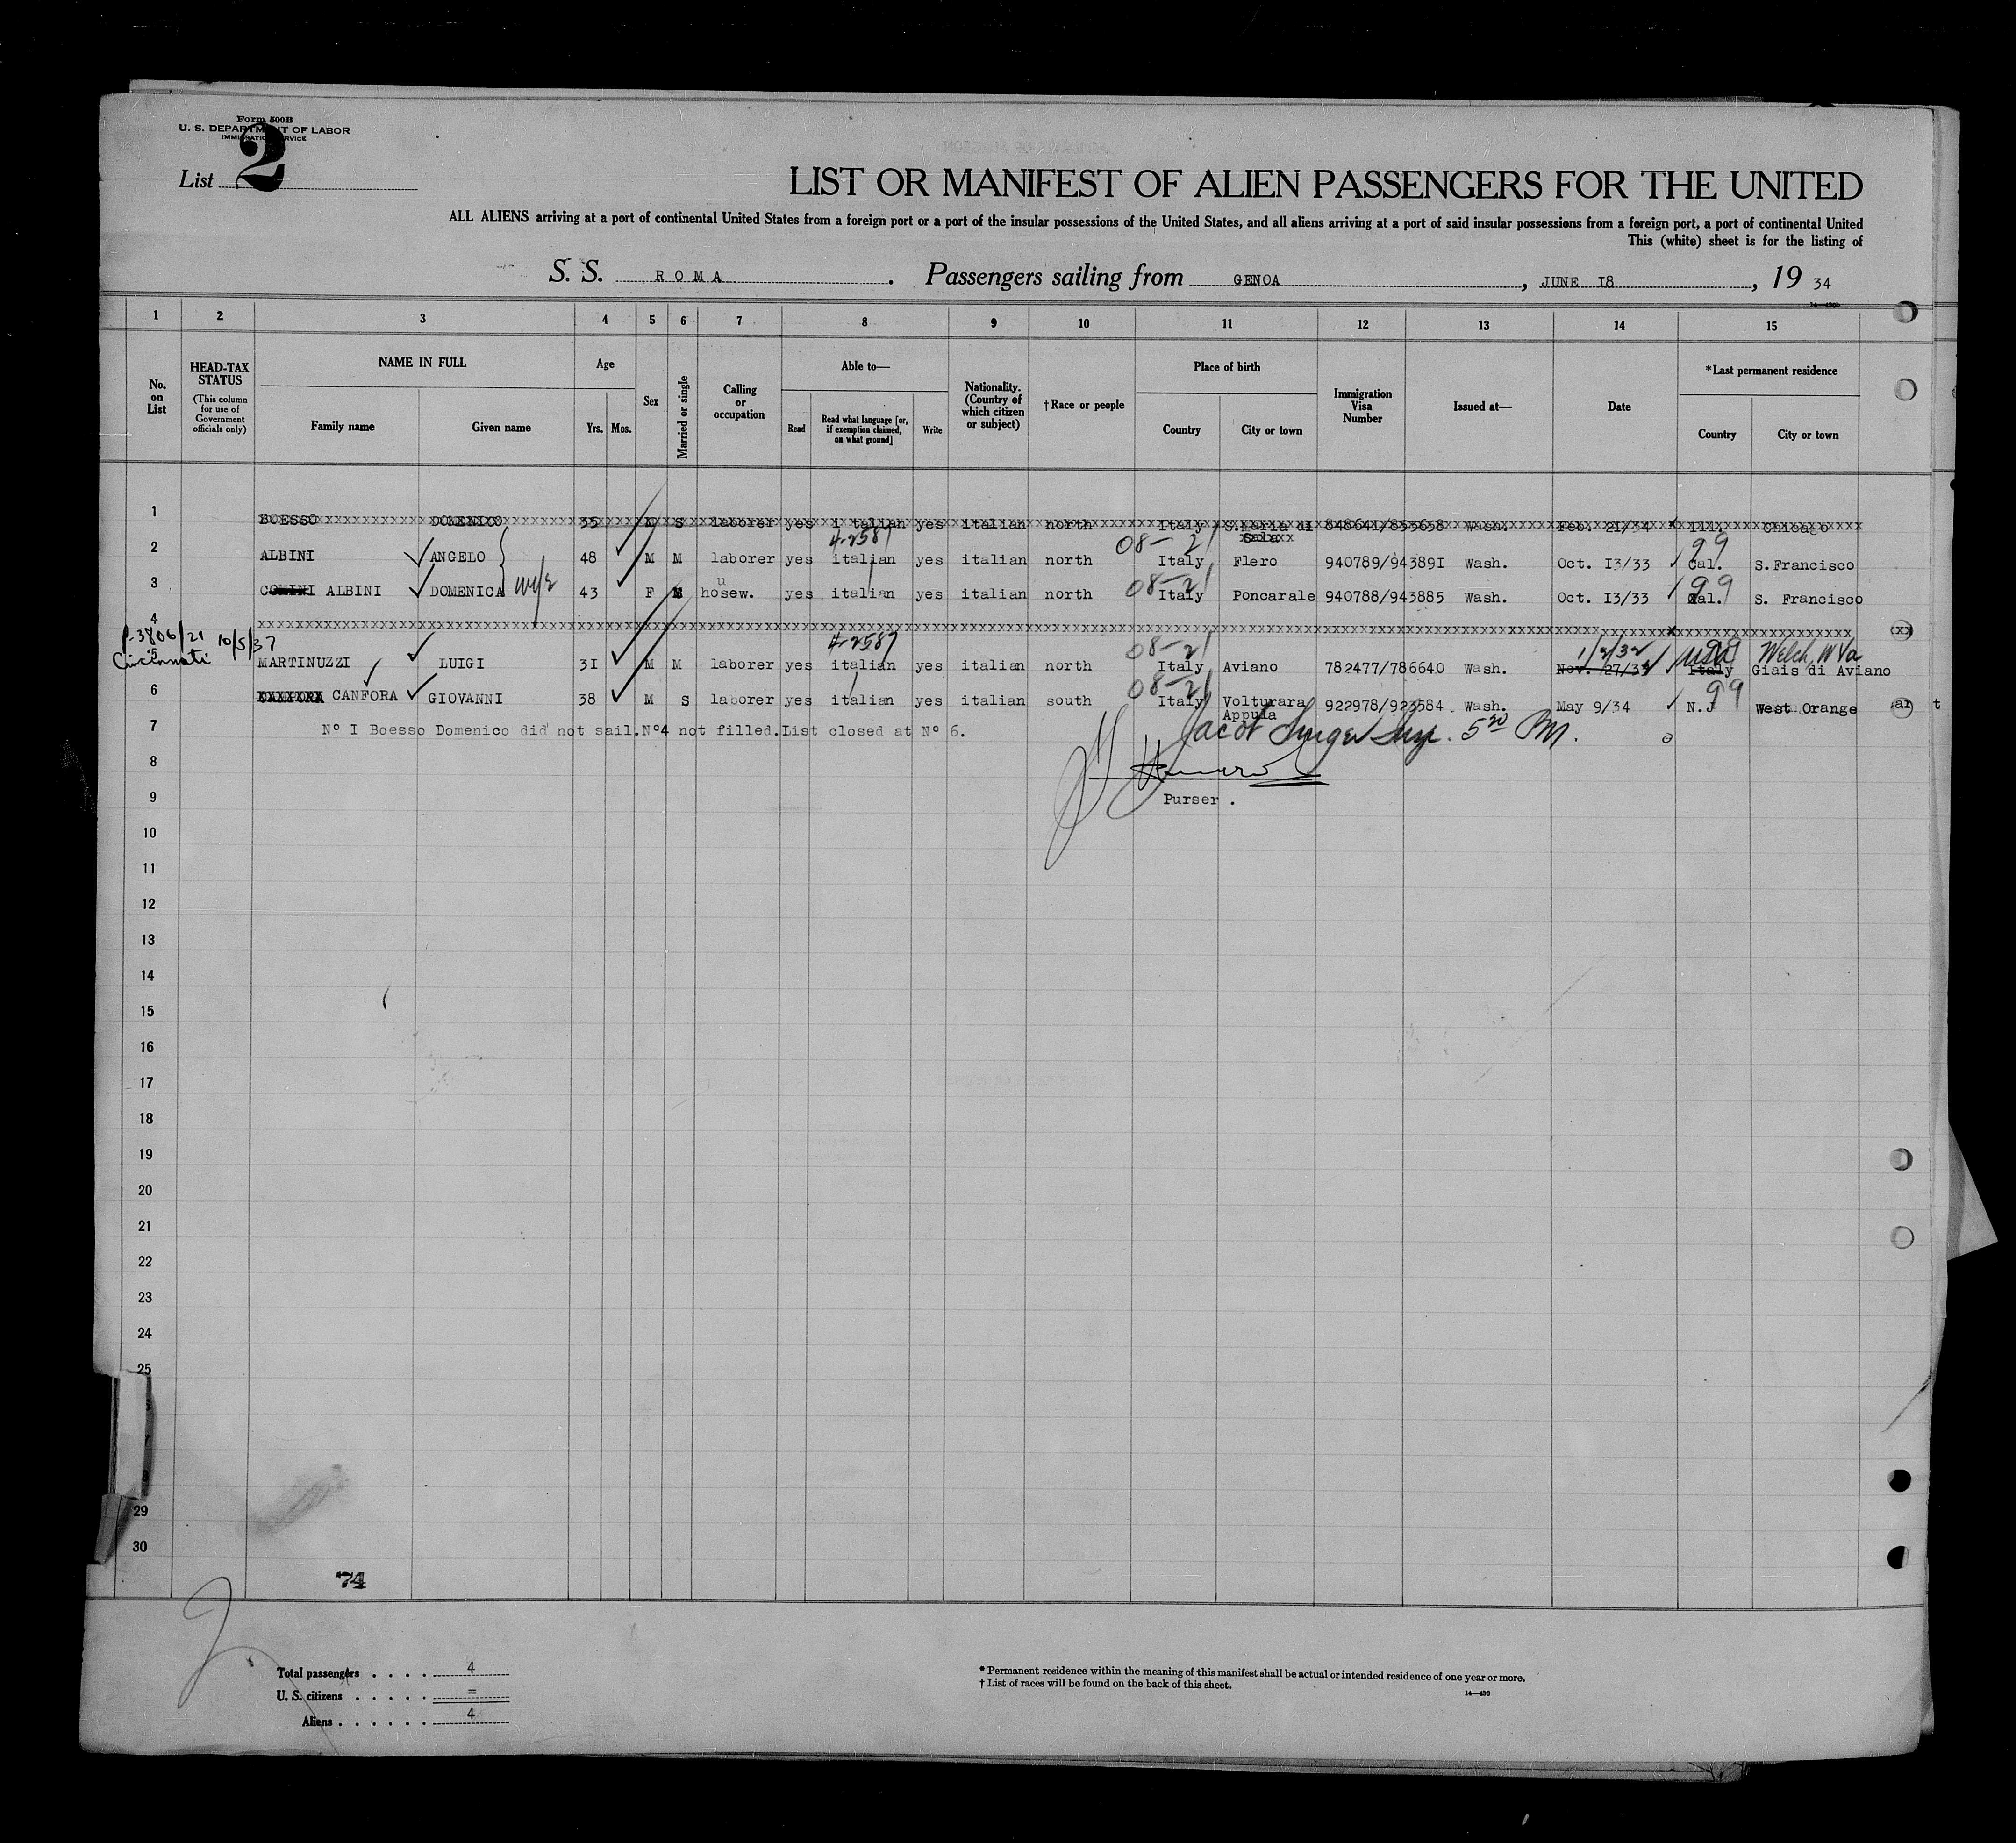 Form 500B
U. S. DEPARTMENT OF LABOR
IMMIGRATION SERVICE
List 2
LIST OR MANIFEST OF ALIEN PASSENGERS FOR THE UNITED
ALL ALIENS arriving at a port of continental United States from a foreign port or a port of the insular possessions of the United States, and all aliens arriving at a port of said insular possessions from a foreign port, a port of continental United
This (white) sheet is for the listing of
S. S. ROMA. Passengers sailing from GENOA, JUNE I8, 19 34
14—430b
1 2 3 4 5 6 7 8 9 10 11 12 13 14 15
No. on List
HEAD-TAX STATUS (This column for use of Government officials only)
NAME IN FULL
Family name Given name
Age
Yrs. Mos.
Sex
Married or single
Calling or occupation
Able to—
Read
Read what language [or, if exemption claimed, on what ground]
Write
Nationality. (Country of which citizen or subject)
†Race or people
Place of birth
Country City or town
Immigration Visa Number
Issued at—
Date
*Last permanent residence
Country City or town
1 BOESSO DOMENICO 35 M S laborer yes i talian yes italian north Italy S.Maria di Sala 848641/853658 Wash. Feb. 21/34 Ill. Chicago
4-2587 08-21 99
2 ALBINI ANGELO 48 M M laborer yes italian yes italian north Italy Flero 940789/94389I Wash. Oct. I3/33 Cal. S.Francisco
wife 08-21 99
3 COMINI ALBINI DOMENICA 43 F M hosew. u yes italian yes italian north Italy Poncarale 940788/943885 Wash. Oct. I3/33 Cal. S. Francisco
4
P-3806/21 10/5/37 4-2587 08-21 1/2/32 USA 99 Welch, W Va
Cincinnati
5 MARTINUZZI LUIGI 3I M M laborer yes italian yes italian north Italy Aviano 782477/786640 Wash. Nov. 27/3 Italy Giais di Aviano
08-21 99
6 CANFORA GIOVANNI 38 M S laborer yes italian yes italian south Italy Volturara Appula 922978/923584 Wash. May 9/34 N.J West Orange
7 N° I Boesso Domenico did not sail.N°4 not filled.List closed at N° 6.
Jacob Singer Insp. 5 30 PM.
8
9 Purser .
10
11
12
13
14
15
16
17
18
19
20
21
22
23
24
25
29
30
74
Total passengers . . . . 4
U. S. citizens . . . . . =
Aliens . . . . . . 4
* Permanent residence within the meaning of this manifest shall be actual or intended residence of one year or more.
† List of races will be found on the back of this sheet.
14—430